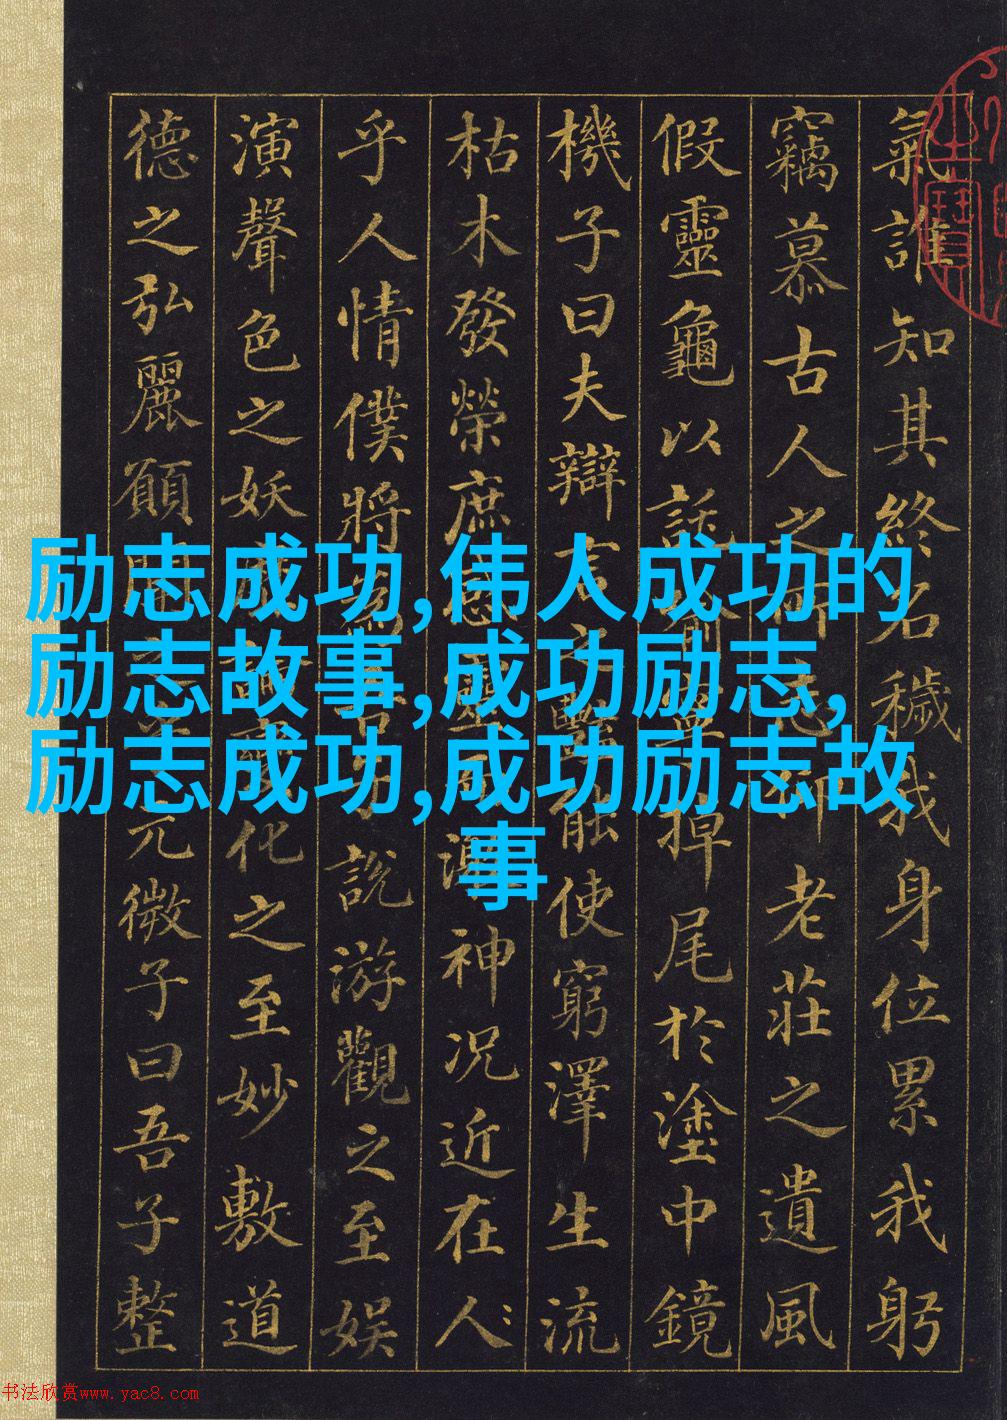 氣誰知其終名穢我身位累我躬
竊慕古人之所志仰老莊之遺風
假靈龜以託喻寧掉尾於塗中鏡
機子曰夫辯言之豔能使窮澤生流
枯木發榮庶感靈而激神況近在人
乎人情僕將為吾子說游觀之至娛
演聲色之妖靡論變化之至妙敷道
德之弘麗願聞之乎元微子曰吾子整
励志成功,伟人成功的
励志故事,成功励志,
励志成功,成功励志故
事
书法欣赏www.yac8.com